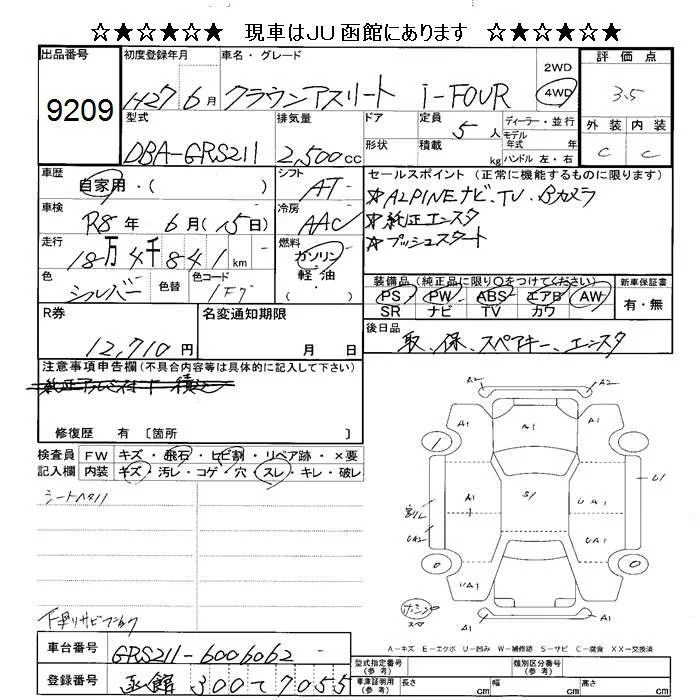 ☆★☆★☆ 現車はJU函館にあります ☆★☆★☆
出品番号
9209
初度登録年月
H27 6月
車名・グレード
クラウンアスリート i-FOUR
2WD
4WD
評価点
3.5
外装 内装
C C
型式
DBA-GRS211
排気量
2,500cc
ドア
形状
定員
5人
積載
kg
ディーラー・並行
モデル
年式 年
ハンドル 左・右
車歴
自家用・( )
シフト
AT
車検
R8年 6月(15日)
冷房
AAC
走行
18万4千841km
燃料
ガソリン
軽油
色
シルバー
色替
色コード
1F7
セールスポイント (正常に機能するものに限ります)
☆ALPINEナビ、TV・Bカメラ
☆純正エンスタ
☆プッシュスタート
装備品(純正品に限り○をつけてください)
PS PW ABS エアB AW
SR ナビ TV カワ
新車保証書
有・無
R券
12,710円
名変通知期限
月 日
後日品
取、保、スペアキー、エンスタ
注意事項申告欄(不具合内容等は具体的に記入して下さい)
修復歴 有 〔箇所 〕
検査員
記入欄
FW キズ・飛石・ヒビ割・リペア跡・×要
内装 キズ・汚レ・コゲ・穴・スレ・キレ・破レ
シートヘタリ
下廻りサビ
A2 A2
A1
1
A1 S1 UA1
U1
UA2
A1 UA1
0 0
UA1 A1 UA1
スペ
A1 A1
A-キズ E-エクボ U-凹み W-補修跡 S-サビ C-腐食 XX-交換済
車台番号
GRS211-6006062
登録番号
函館 300て7055
型式指定番号
(参考)
類別区分番号
(参考)
車庫証明用
(参考)
長さ cm 幅 cm 高さ cm